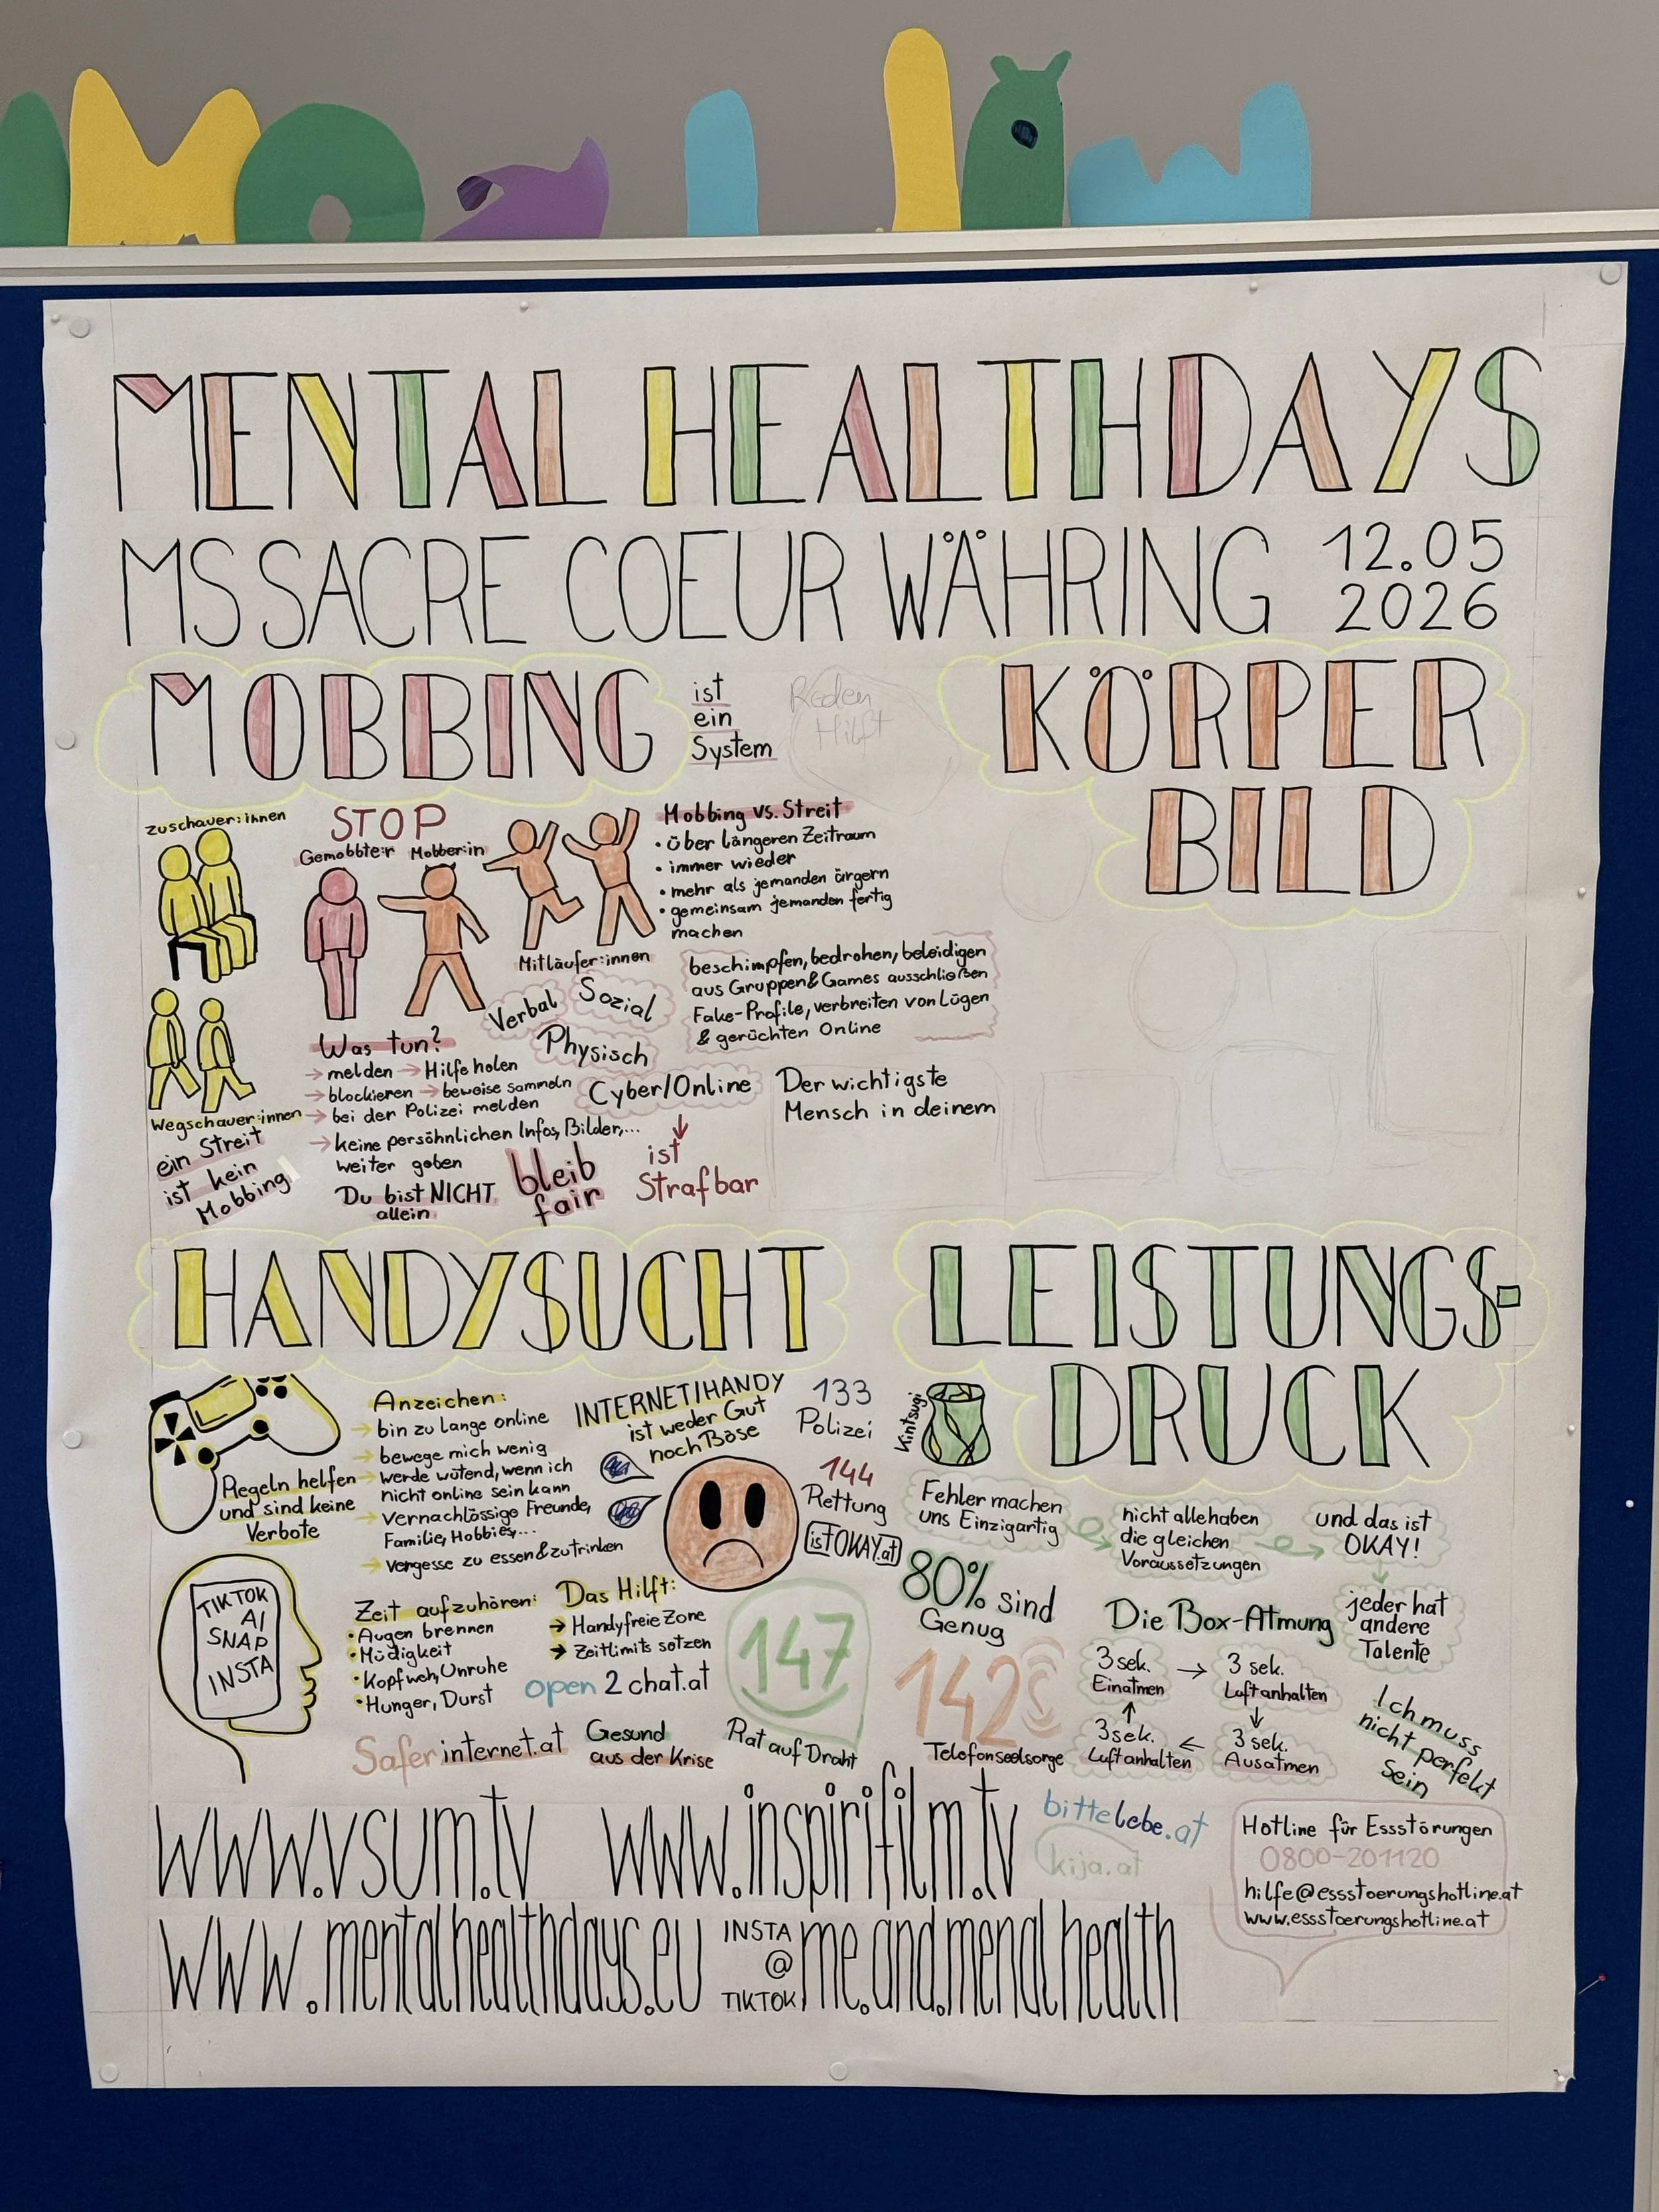 MENTAL HEALTH DAYS
MS SACRE COEUR WÄHRING 12.05
2026
MOBBING
ist
ein
System
Reden
Hilft
KÖRPER
BILD
Zuschauer:innen
STOP
Gemobbte:r Mobber:in
Mitläufer:innen
Wegschauer:innen
ein Streit
ist kein
Mobbing
Mobbing vs. Streit
• über längeren Zeitraum
• immer wieder
• mehr als jemanden ärgern
• gemeinsam jemanden fertig
machen
beschimpfen, bedrohen, beleidigen
aus Gruppen & Games ausschließen
Fake-Profile, verbreiten von Lügen
& gerüchten Online
Verbal
Sozial
Physisch
Cyber/Online
ist
Strafbar
Was tun?
→ melden → Hilfe holen
→ blockieren → beweise sammeln
→ bei der Polizei melden
→ keine persöhnlichen Infos, Bilder,...
weiter geben
Du bist NICHT
allein
bleib
fair
Der wichtigste
Mensch in deinem
HANDYSUCHT
Regeln helfen
und sind keine
Verbote
Anzeichen:
→ bin zu lange online
→ bewege mich wenig
→ werde wütend, wenn ich
nicht online sein kann
→ vernachlössige Freunde,
Familie, Hobbies,...
→ vergesse zu essen & zu trinken
INTERNET/HANDY
ist weder Gut
noch Böse
133
Polizei
144
Rettung
istOKAY.at
TIKTOK
AI
SNAP
INSTA
Zeit aufzuhören:
• Augen brennen
• Müdigkeit
• Kopfweh, Unruhe
• Hunger, Durst
Das Hilft:
→ Handyfreie Zone
→ Zeitlimits setzen
open2chat.at
Saferinternet.at
Gesund
aus der Krise
147
Rat auf Draht
LEISTUNGS-
DRUCK
Kintsugi
Fehler machen
uns Einzigartig
nicht alle haben
die gleichen
Voraussetzungen
und das ist
OKAY!
jeder hat
andere
Talente
80% sind
Genug
142
Telefonseelsorge
Die Box-Atmung
3 sek.
Einatmen
→
3 sek.
Luft anhalten
↓
3 sek.
Ausatmen
←
3 sek.
Luft anhalten
↑
Ich muss
nicht perfekt
Sein
www.vsum.tv www.inspirifilm.tv
bittelebe.at
kija.at
Hotline für Essstörungen
0800-201120
hilfe@essstoerungshotline.at
www.essstoerungshotline.at
www.mentalhealthdays.eu
INSTA
@
TIKTOK
me.and.menal health